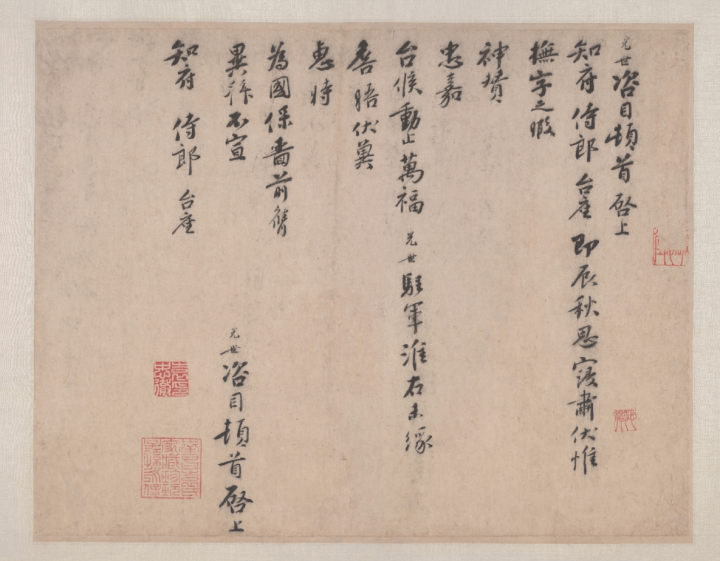 光世咨目頓首啓上
知府侍郎台座即辰秋思寖肅伏惟
撫字之暇
神賛
忠嘉
台候動止萬福光世駐軍淮右未緣
詹晤伏冀
惠時
為國保嗇前膺
異拜不宣
光世咨目頓首啓上
知府侍郎台座